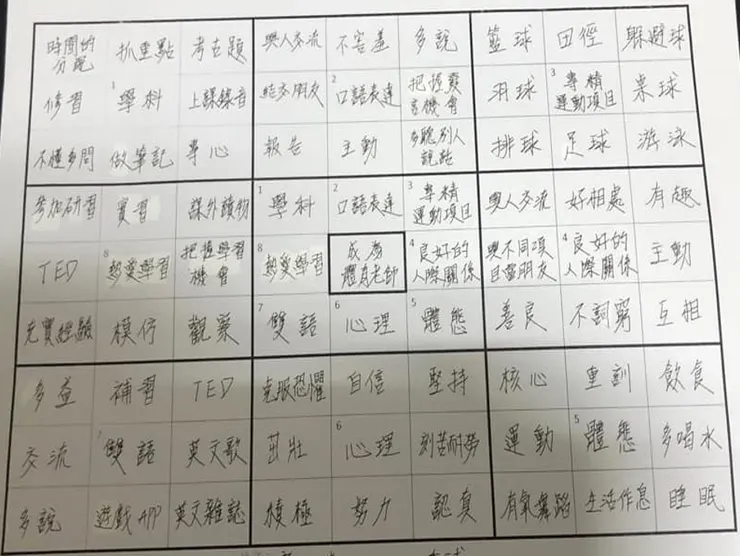 時間的分配 抓重點 考古題 與人交流 不害羞 多說 籃球 田徑 躲避球
修習 1學科 上課錄音 結交朋友 2口語表達 把握發言機會 羽球 3專精運動項目 桌球
不懂多問 做筆記 專心 報告 主動 多聽別人說話 排球 足球 游泳
參加研習 實習 課外讀物 1學科 2口語表達 3專精運動項目 與人交流 好相處 有趣
TED 8熱愛學習 把握學習機會 8熱愛學習 成為體育老師 4良好的人際關係 與不同項目當朋友 4良好的人際關係 主動
充實經驗 模仿 觀察 7雙語 6心理 5體態 善良 不詞窮 互相
多益 補習 TED 克服恐懼 自信 堅持 核心 重訓 飲食
交流 7雙語 英文歌 茁壯 6心理 刻苦耐勞 運動 5體態 多喝水
多說 遊戲APP 英文雜誌 積極 努力 認真 有氧舞蹈 生活作息 睡眠